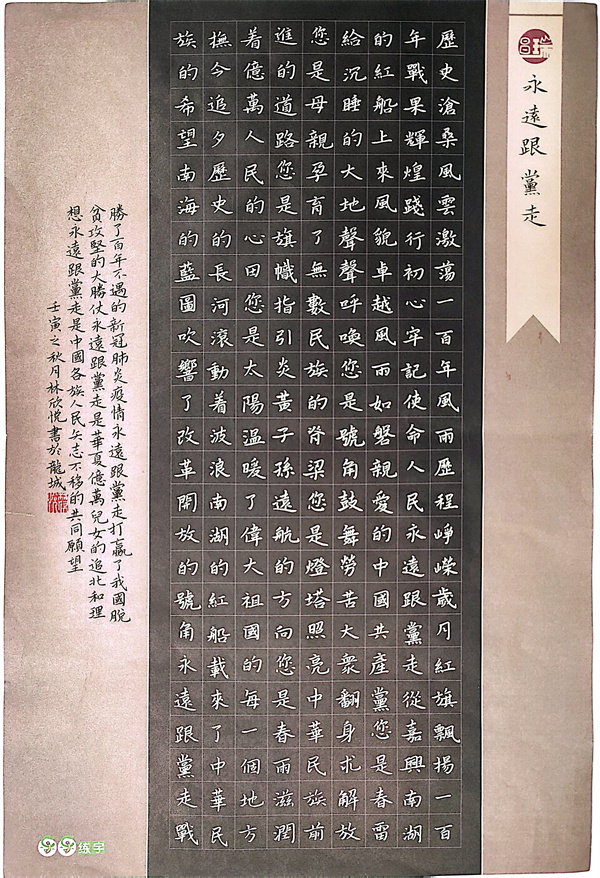 瑞昌
永遠跟黨走
歷史滄桑風雲激蕩一百年風雨歷程崢嶸歲月紅旗飄揚一百
年戰果輝煌踐行初心牢記使命人民永遠跟黨走從嘉興南湖
的紅船上來風貌卓越風雨如磐親愛的中國共產黨您是春雷
給沉睡的大地聲聲呼喚您是號角鼓舞勞苦大衆翻身求解放
您是母親孕育了無數民族的脊梁您是燈塔照亮中華民族前
進的道路您是旗幟指引炎黃子孫遠航的方向您是春雨滋潤
着億萬人民的心田您是太陽溫暖了偉大祖國的每一個地方
撫今追夕歷史的長河滾動着波浪南湖的紅船載來了中華民
族的希望南海的藍圖吹響了改革開放的號角永遠跟黨走戰
勝了百年不遇的新冠肺炎疫情永遠跟黨走打贏了我國脫
貧攻堅的大勝仗永遠跟黨走是華夏億萬兒女的追北和理
想永遠跟黨走是中國各族人民矢志不移的共同願望
壬寅之秋月林欣悅書於龍城
练字